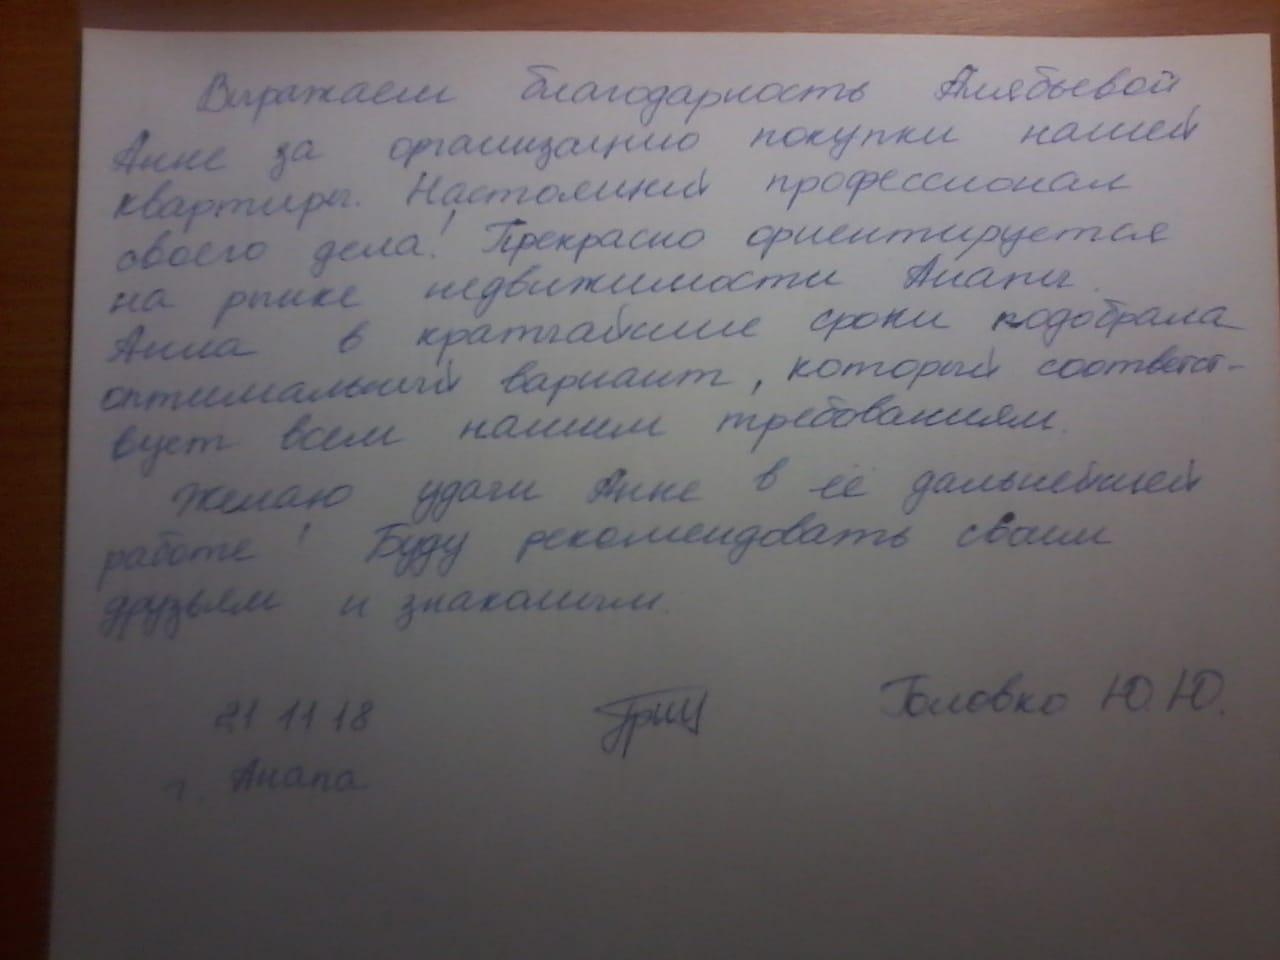 Выражаем благодарность Алябьевой
Анне за организацию покупки нашей
квартиры. Настоящий профессионал
своего дела! Прекрасно ориентируется
на рынке недвижимости Анапы.
Анна в кратчайшие сроки подобрала
оптимальный вариант, который соответст-
вует всем нашим требованиям.
Желаю удачи Анне в её дальнейшей
работе! Буду рекомендовать своим
друзьям и знакомым.
21 11 18 Головко Ю.Ю.
г. Анапа